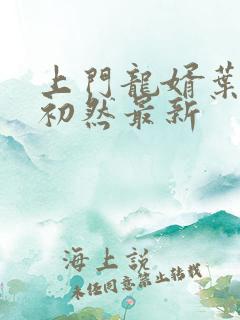 上門龍婿葉
初然最新
海上説
未经同意禁止转载